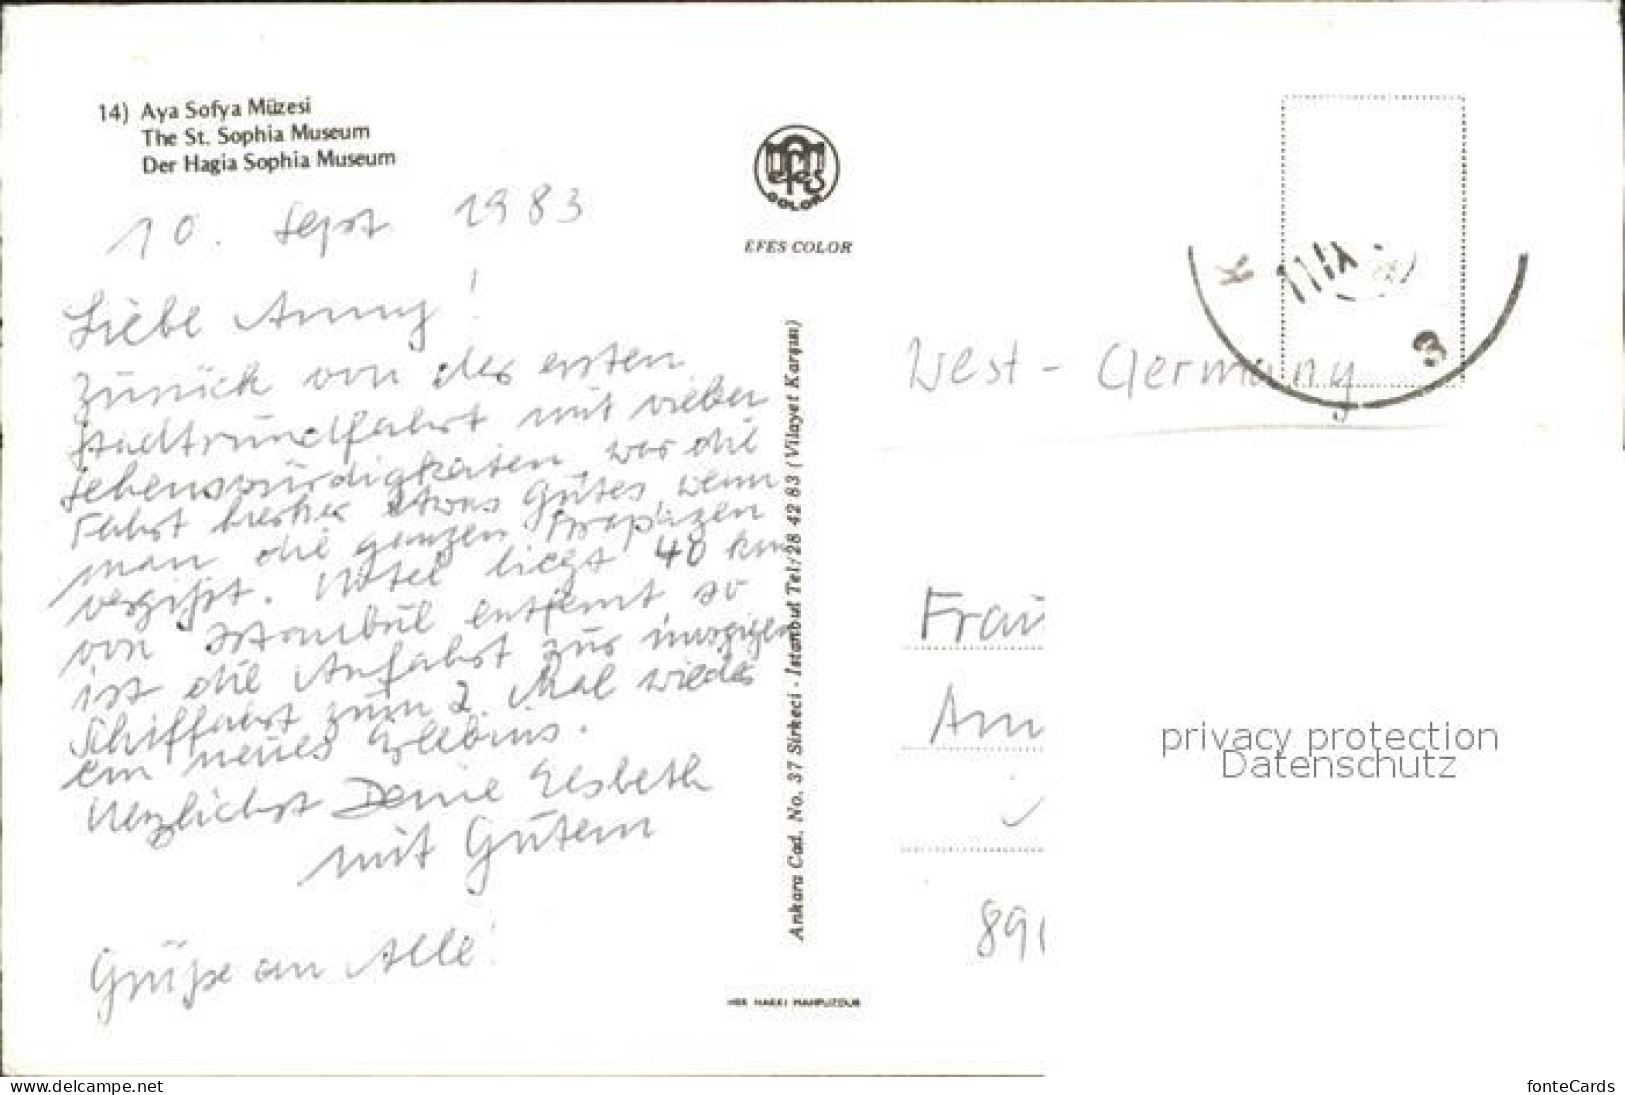 14) Aya Sofya Müzesi
The St. Sophia Museum
Der Hagia Sophia Museum
10. Sept 1983
Liebe Anny!
Zurück von der ersten
Stadtrundfahrt mit vielen
Sehenswürdigkeiten, war die
Fahrt bisher etwas Gutes, wenn
man die ganzen Strapazen
vergißt. Hotel liegt 40 km
von Istanbul entfernt, so
ist die Anfahrt zur
Schiffahrt zum 2. Mal wieder
ein neues Erlebnis.
Herzlichst Deine Elsbeth
mit Gütern
Grüße an Alle!
EFES COLOR
EFES COLOR
Ankara Cad. No. 37 Sirkeci - İstanbul Tel: 28 42 63 (Vilayet Karşısı)
HER HAKKI MAHFUZDUR
K
3
West-Germany
Frau
Ann
891
privacy protection
Datenschutz
www.delcampe.net
fonteCards